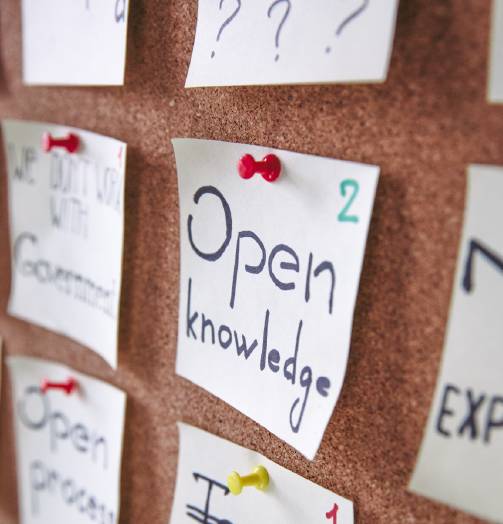 ? ? ?
1
WE DON'T WORK
WITH
Government
2
Open
knowledge
Open
process
EXP
1